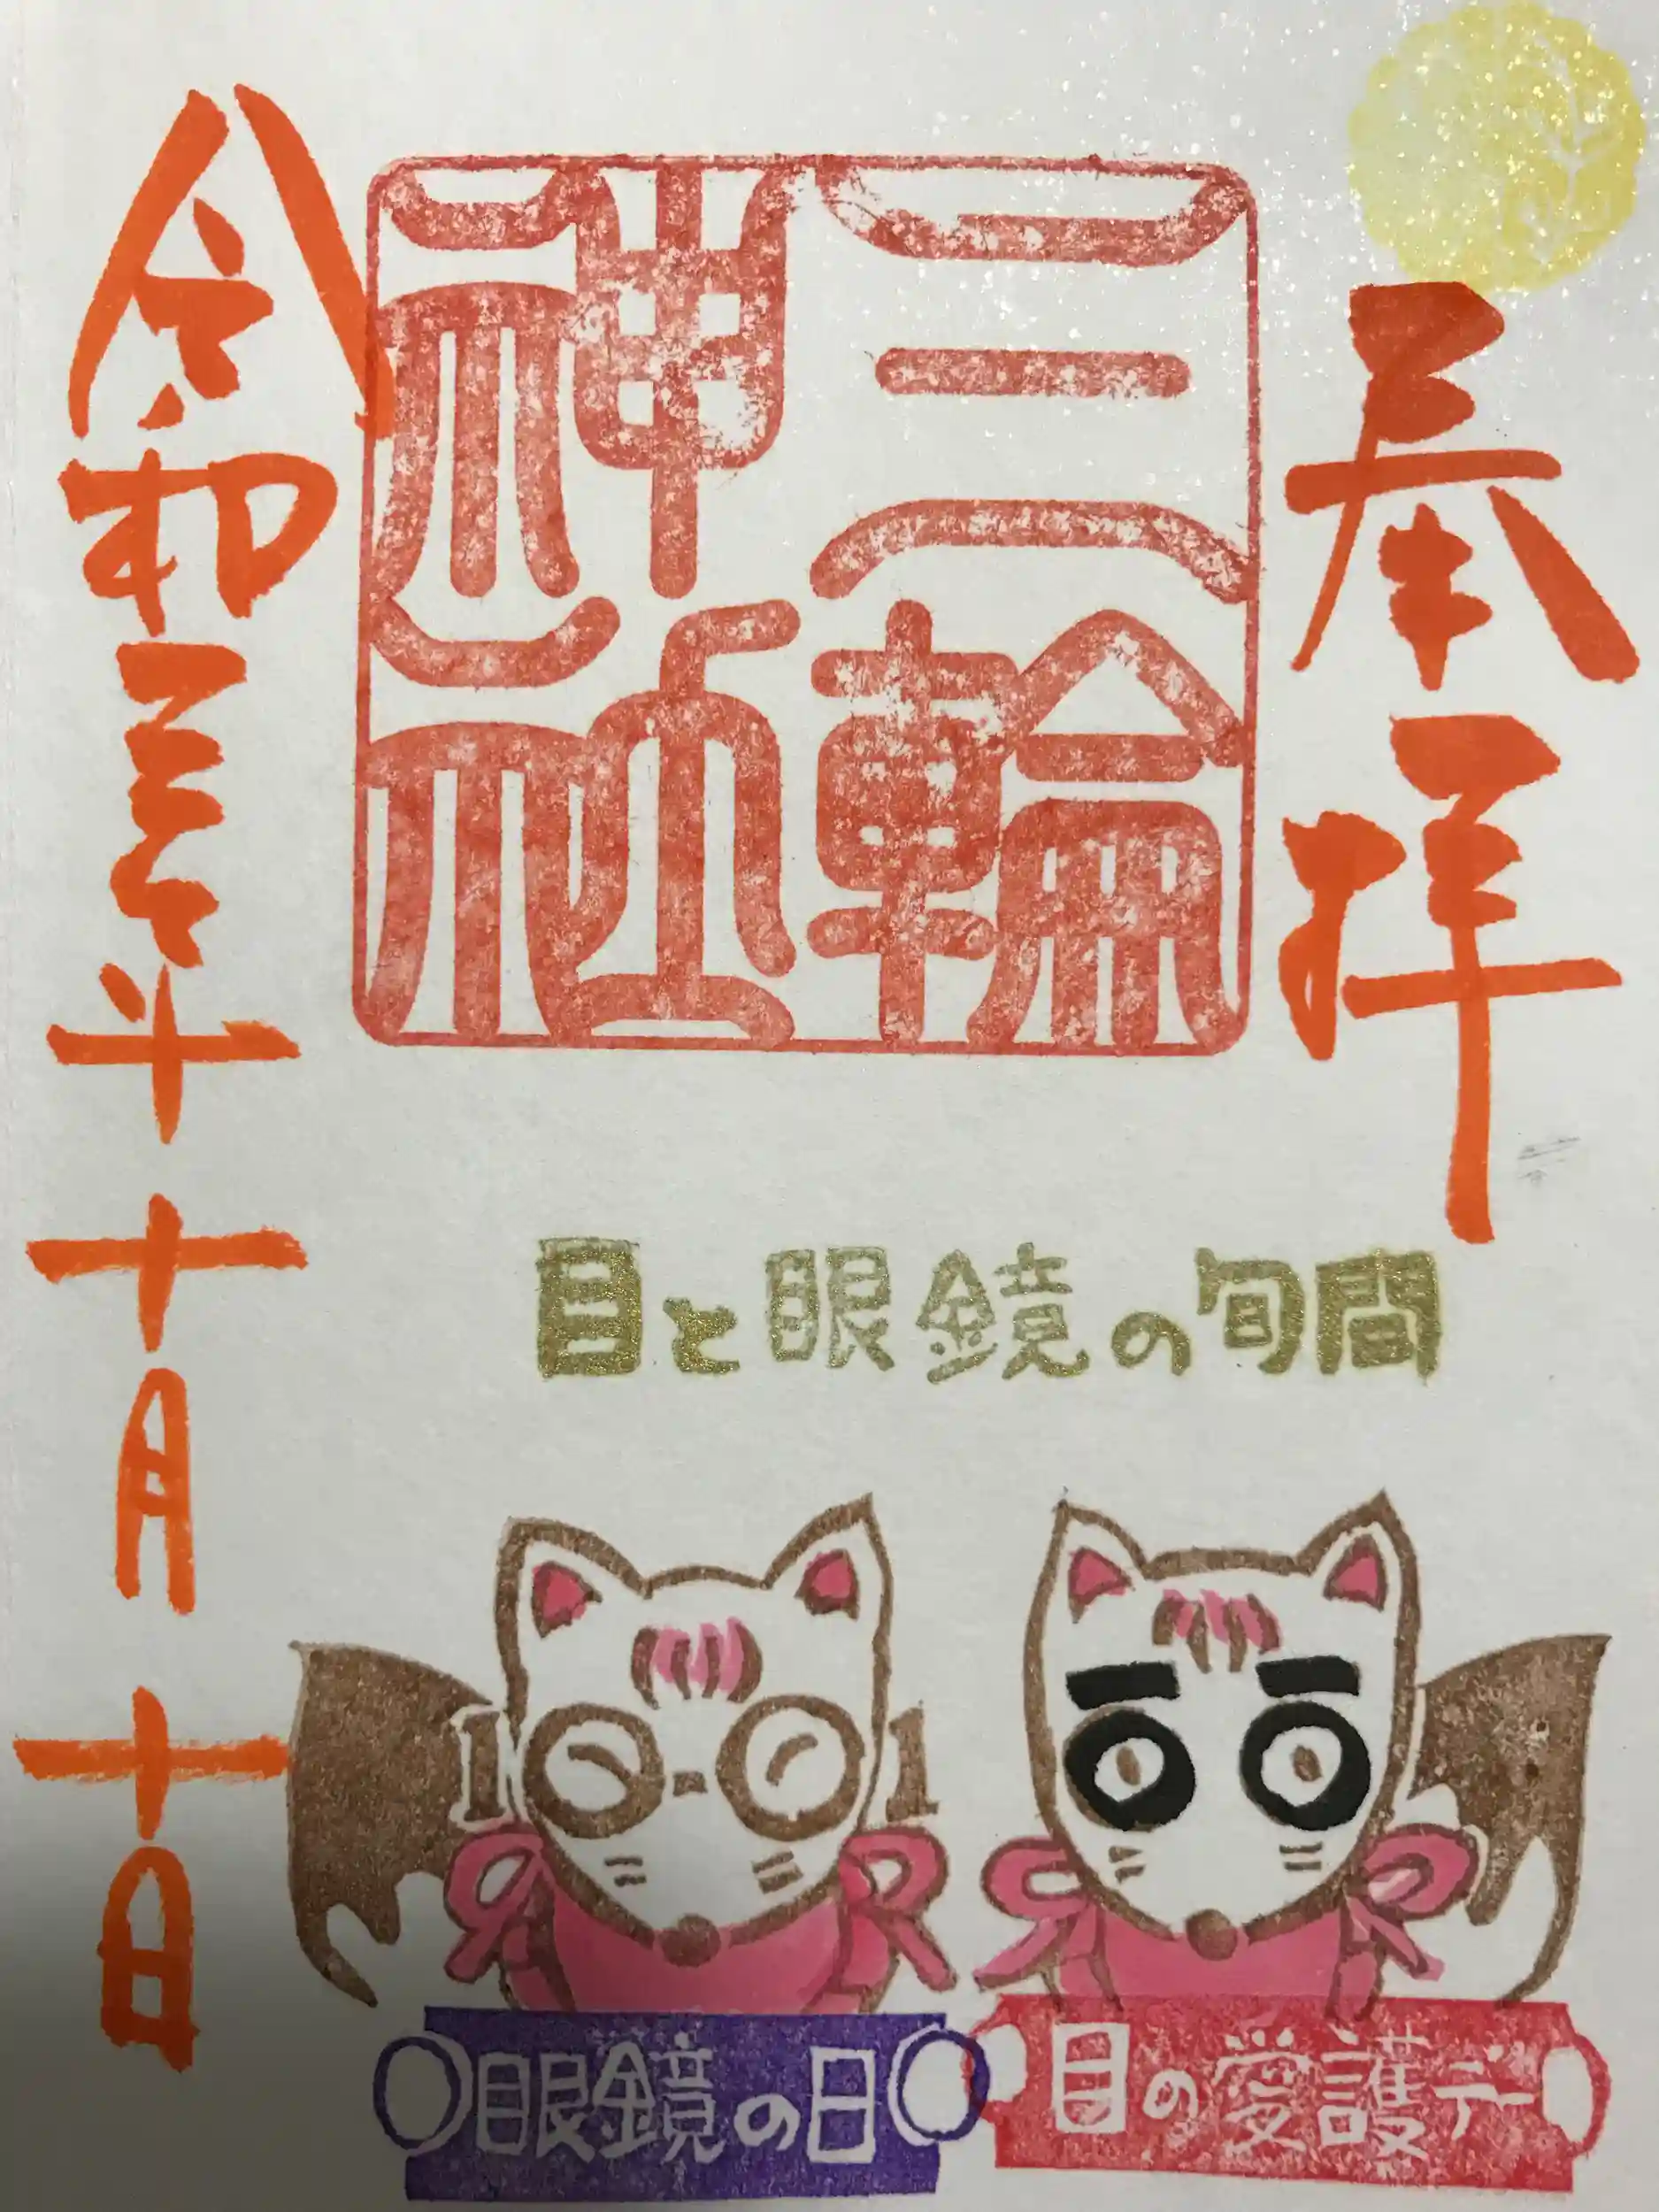 奉拝
三輪
神社
令和三年十月十日
目と眼鏡の旬間
1 1
眼鏡の日
目の愛護デー